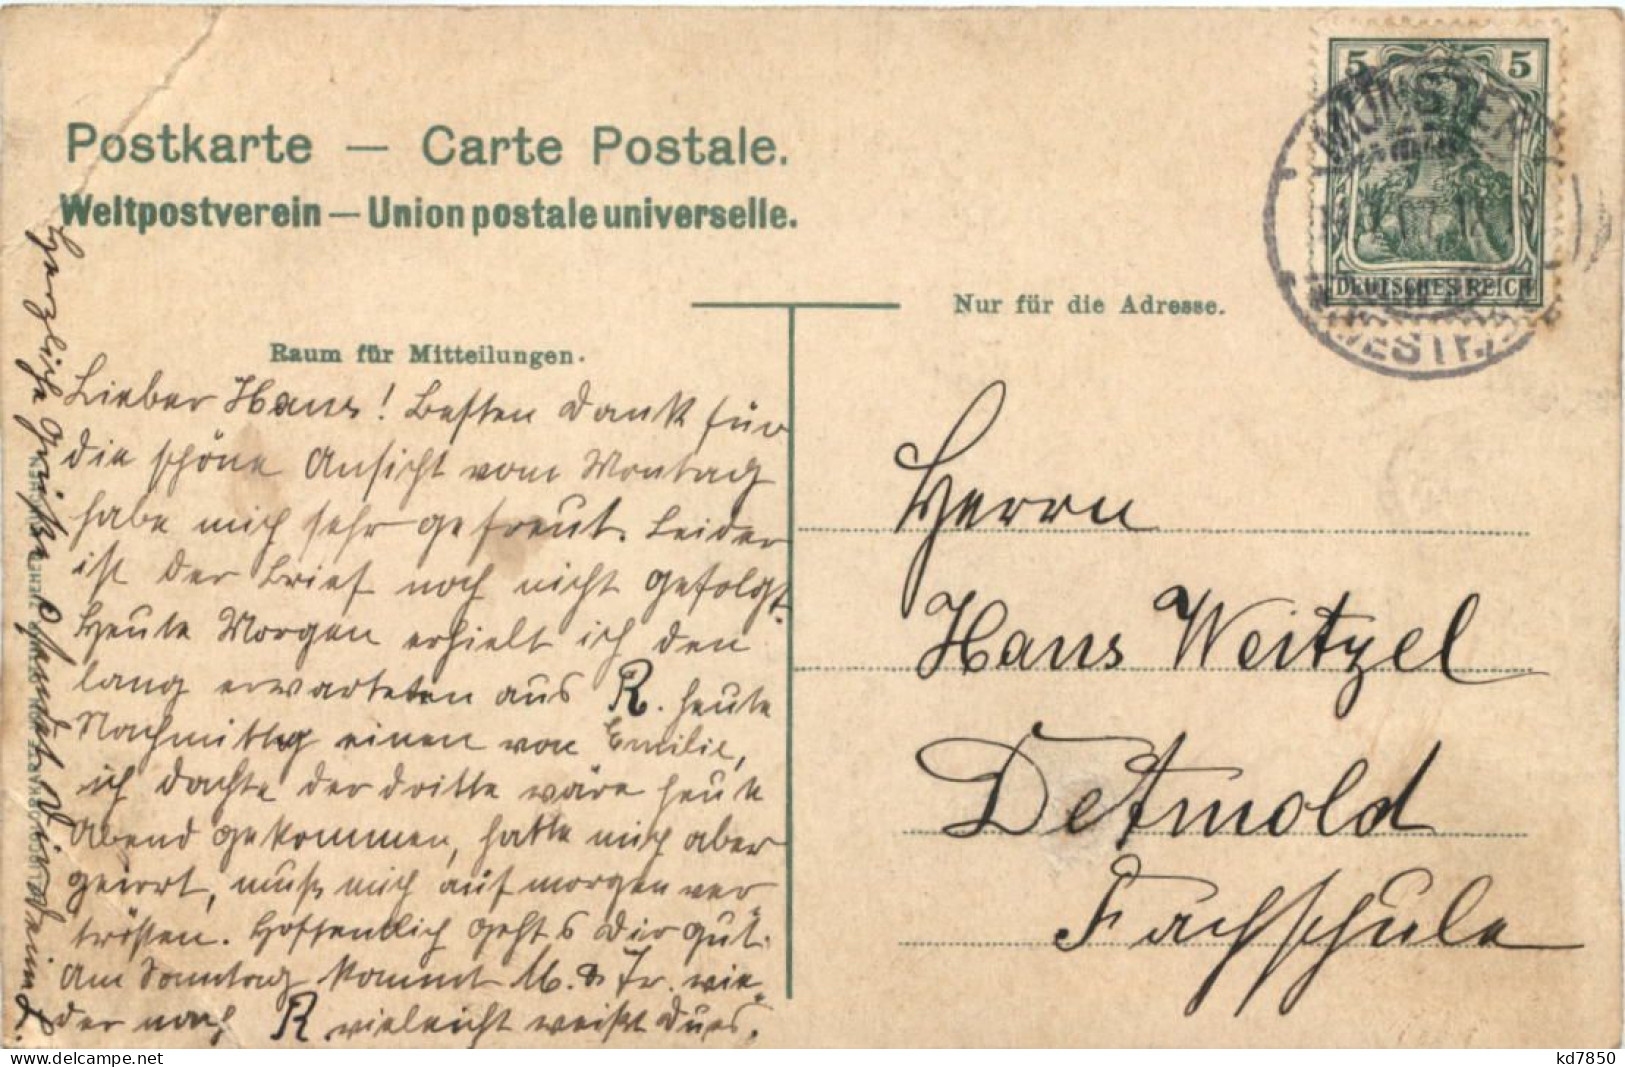 Postkarte — Carte Postale.
Weltpostverein — Union postale universelle.
5 5
DEUTSCHES REICH
MÜNSTER
(WESTF.)
Nur für die Adresse.
Raum für Mitteilungen.
Lieber Hans! Besten Dank für
die schöne Ansicht vom Montag
habe mich sehr gefreut. Leider
ist der Brief noch nicht gefolgt.
Heute Morgen erhielt ich den
lang erwarteten aus R. heute
Nachmittag einen von Emilie,
ich dachte der dritte wäre heute
Abend gekommen, hatte mich aber
geirrt, muß mich auf morgen ver-
trösten. Hoffentlich geht s Dir gut.
Am Sonntag kommt M. & Fr. wie-
der nach R vieleicht weißt Du es.
Herzliche Grüße sendet Dir Dein L.
Herrn
Hans Weitzel
Detmold
Fachschule
kd7850